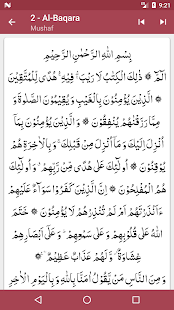 9:21
2 - Al-Baqara
Mushaf
بِسْمِ اللّٰهِ الرَّحْمٰنِ الرَّحِيْمِ
الٓمّٓ ۞ ذٰلِكَ الْكِتٰبُ لَا رَيْبَ ۛ فِيْهِ ۛ هُدًى لِّلْمُتَّقِيْنَ
۞ الَّذِيْنَ يُؤْمِنُوْنَ بِالْغَيْبِ وَيُقِيْمُوْنَ الصَّلٰوةَ
وَمِمَّا رَزَقْنٰهُمْ يُنْفِقُوْنَ ۞ وَالَّذِيْنَ يُؤْمِنُوْنَ بِمَآ
اُنْزِلَ اِلَيْكَ وَمَآ اُنْزِلَ مِنْ قَبْلِكَ ۚ وَبِالْاٰخِرَةِ هُمْ
يُوْقِنُوْنَ ۞ اُولٰٓئِكَ عَلٰى هُدًى مِّنْ رَّبِّهِمْ ۙ وَاُولٰٓئِكَ
هُمُ الْمُفْلِحُوْنَ ۞ اِنَّ الَّذِيْنَ كَفَرُوْا سَوَآءٌ عَلَيْهِمْ
ءَاَنْذَرْتَهُمْ اَمْ لَمْ تُنْذِرْهُمْ لَا يُؤْمِنُوْنَ ۞ خَتَمَ
اللّٰهُ عَلٰى قُلُوْبِهِمْ وَعَلٰى سَمْعِهِمْ ۗ وَعَلٰٓى اَبْصَارِهِمْ
غِشَاوَةٌ ۡ وَّلَهُمْ عَذَابٌ عَظِيْمٌ ۞
وَمِنَ النَّاسِ مَنْ يَّقُوْلُ اٰمَنَّا بِاللّٰهِ وَبِالْيَوْمِ الْاٰخِرِ